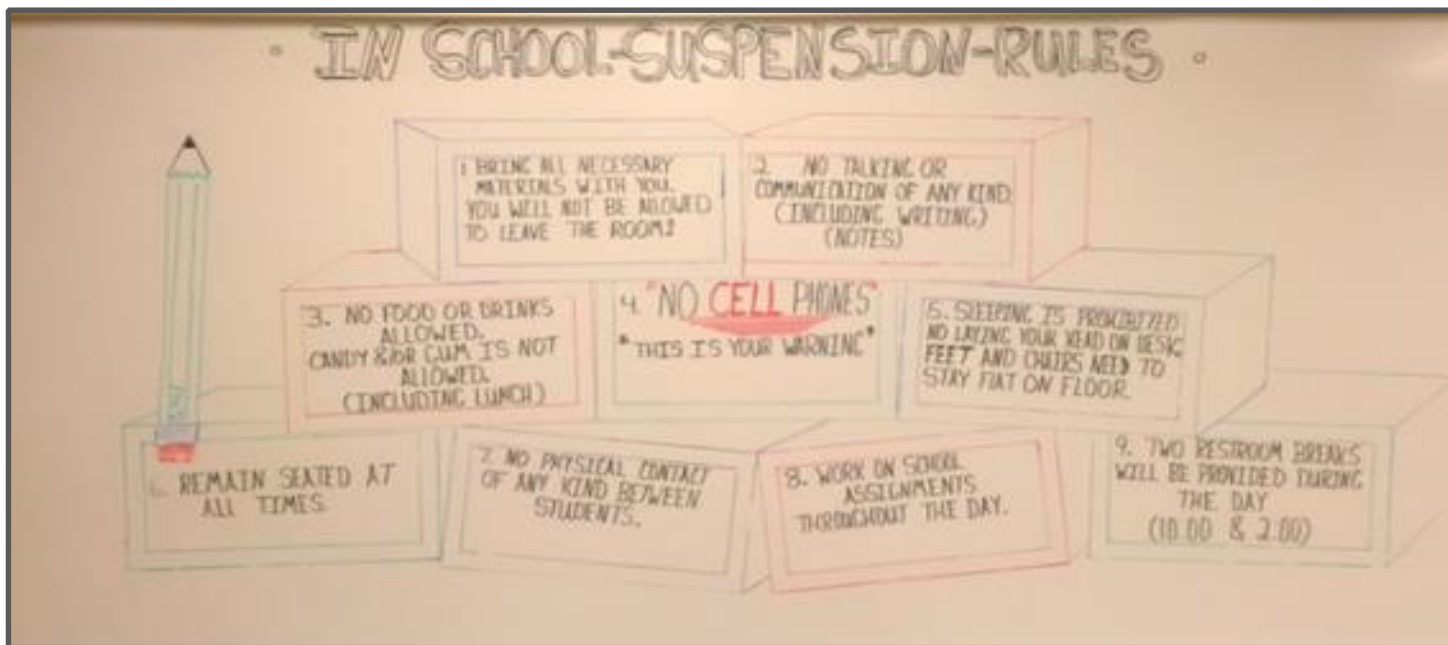 · IN SCHOOL-SUSPENSION-RULES ·
1 BRING ALL NECESSARY
MATERIALS WITH YOU.
YOU WILL NOT BE ALLOWED
TO LEAVE THE ROOM!
2. NO TALKING OR
COMMUNICATION OF ANY KIND.
(INCLUDING WRITING)
(NOTES)
3. NO FOOD OR DRINKS
ALLOWED.
CANDY &/OR GUM IS NOT
ALLOWED.
(INCLUDING LUNCH)
4. "NO CELL PHONES"
*THIS IS YOUR WARNING*
5. SLEEPING IS PROHIBITED
NO LAYING YOUR HEAD ON DESK,
FEET AND CHAIRS NEED TO
STAY FLAT ON FLOOR.
6. REMAIN SEATED AT
ALL TIMES.
7. NO PHYSICAL CONTACT
OF ANY KIND BETWEEN
STUDENTS.
8. WORK ON SCHOOL
ASSIGNMENTS
THROUGHOUT THE DAY.
9. TWO RESTROOM BREAKS
WILL BE PROVIDED DURING
THE DAY
(10:00 & 2:00)